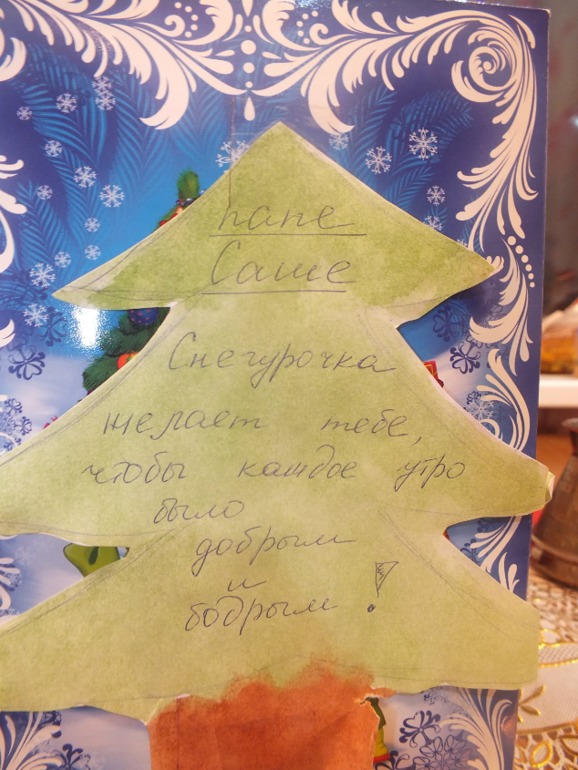 папе
Саше
Снегурочка
желает тебе,
чтобы каждое утро
было
добрым
и
бодрым!